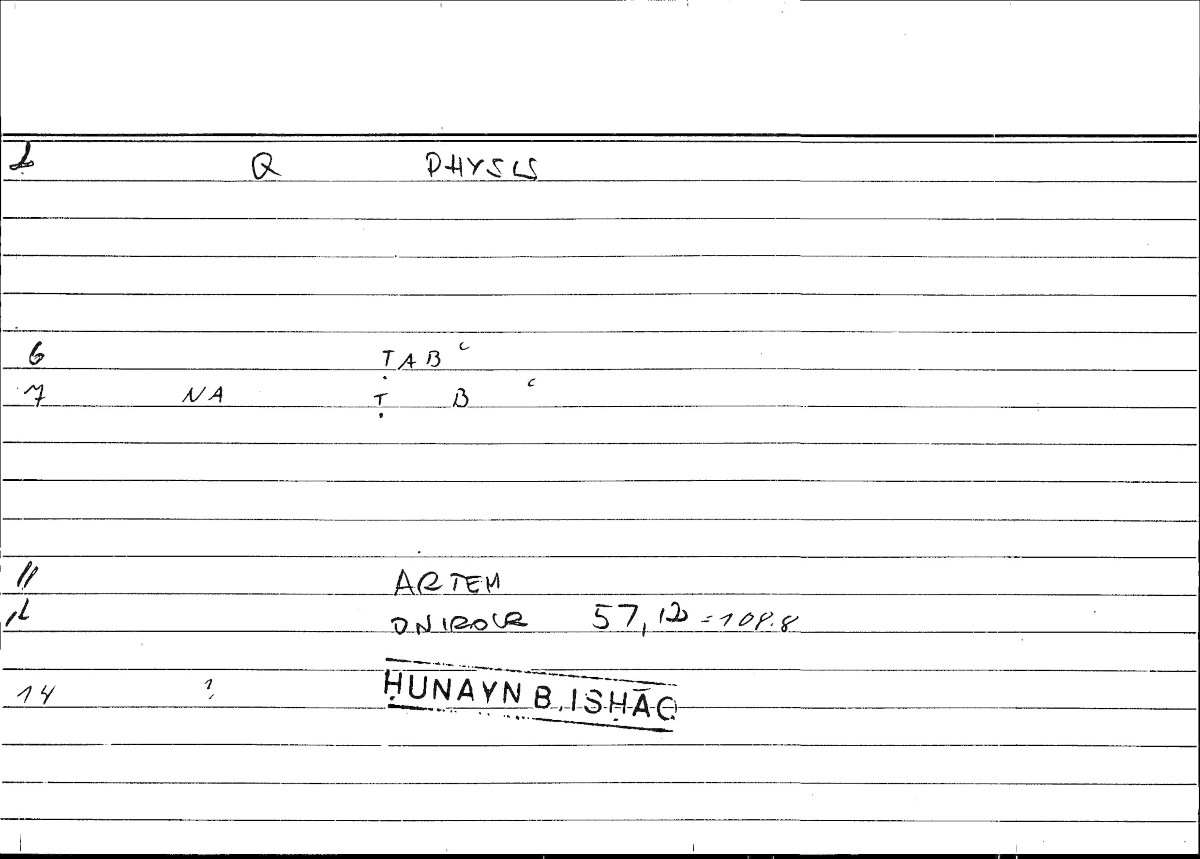 2 Q PHYSIS
6 ṬABʿ
7 NA Ṭ B ʿ
11 ARTEM
12 ONIROCR 57, 12 = 108.8
14 ? ḤUNAYN B. ISḤĀQ